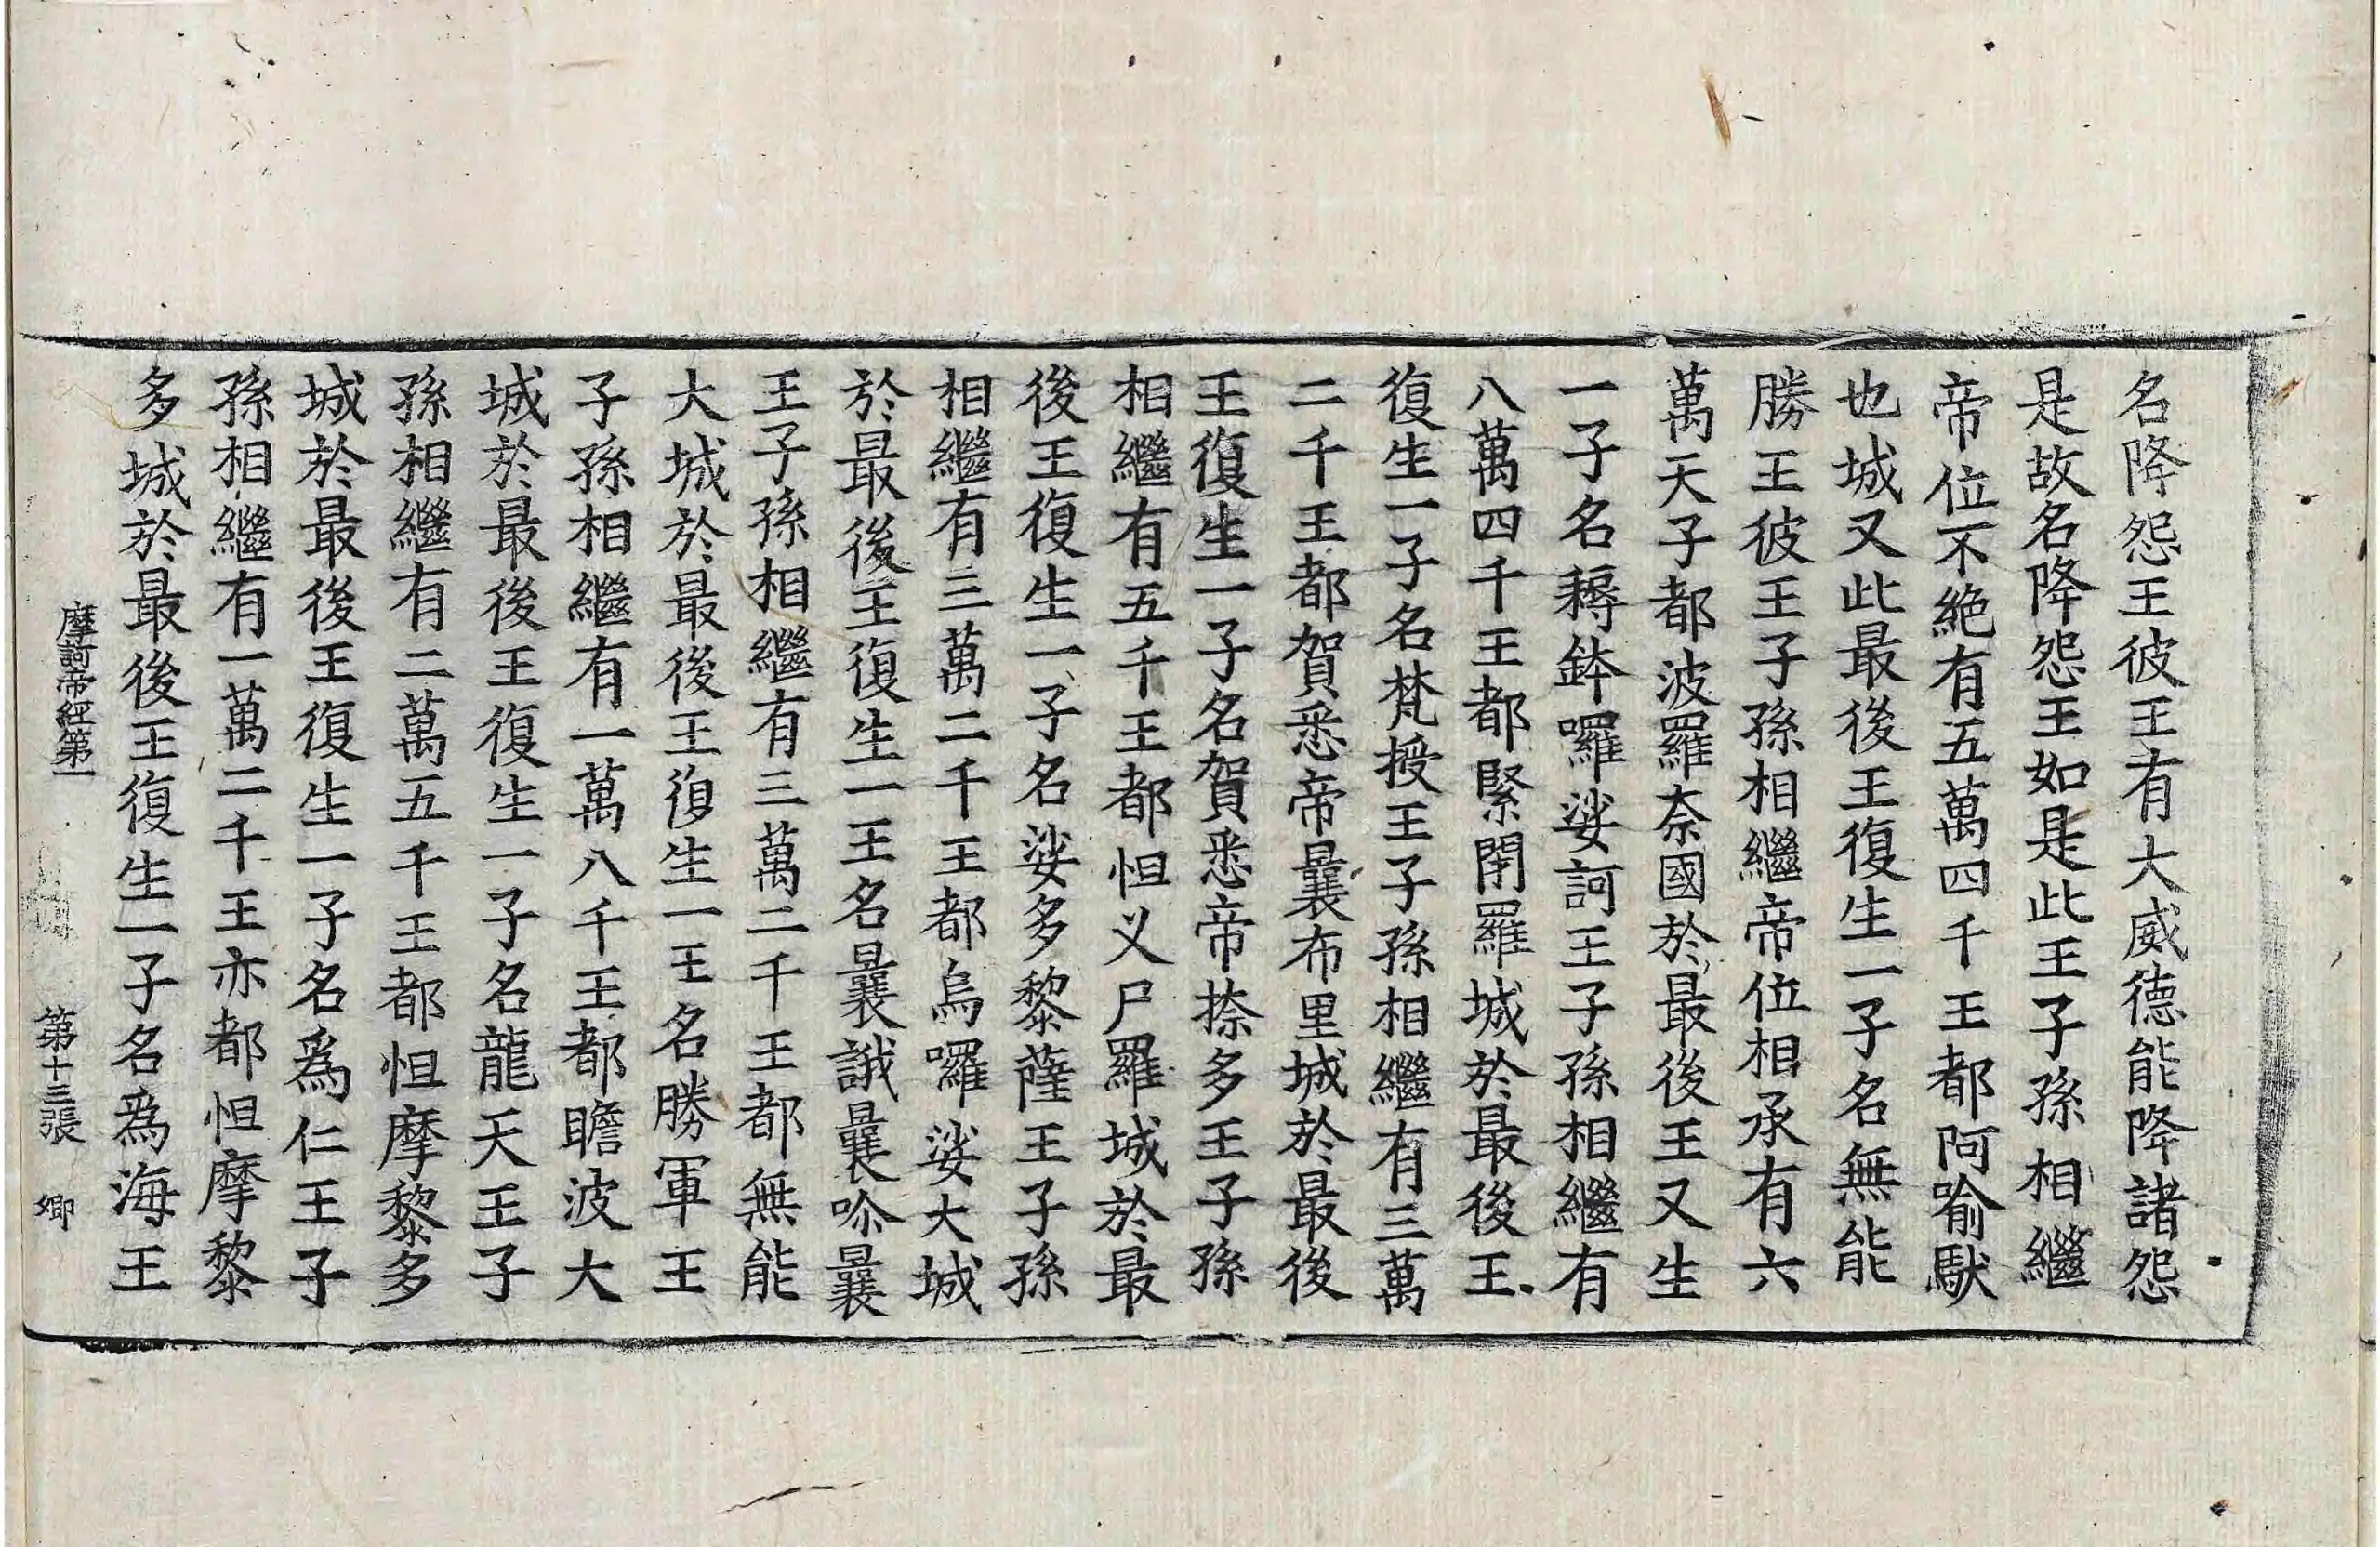 名降怨王彼王有大威德能降諸怨
是故名降怨王如是此王子孫相繼
帝位不絶有五萬四千王都阿喻馱
也城又此最後王復生一子名無能
勝王彼王子孫相繼帝位相承有六
萬天子都波羅奈國於最後王又生
一子名耨鉢囉娑訶王子孫相繼有
八萬四千王都緊閉羅城於最後王
復生一子名梵授王子孫相繼有三萬
二千王都賀悉帝曩布里城於最後
王復生一子名賀悉帝捺多王子孫
相繼有五千王都怛义尸羅城於最
後王復生一子名娑多黎薩王子孫
相繼有三萬二千王都烏囉娑大城
於最後王復生一王名曩誐曩吤曩
王子孫相繼有三萬二千王都無能
大城於最後王復生一王名勝軍王
子孫相繼有一萬八千王都瞻波大
城於最後王復生一子名龍天王子
孫相繼有二萬五千王都怛摩黎多
城於最後王復生一子名爲仁王子
孫相繼有一萬二千王亦都怛摩黎
多城於最後王復生一子名爲海王
摩訶帝經第一 第十三張 卿